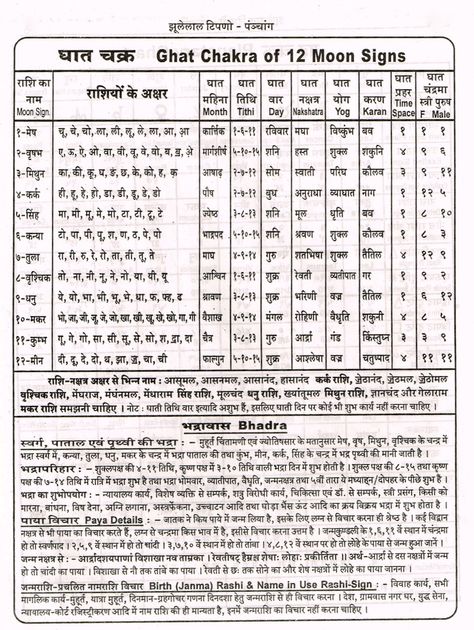 झूलेलाल टिपणो - पंञ्चांग
घात चक्र Ghat Chakra of 12 Moon Signs
राशि का नाम Moon Sign. राशियों के अक्षर घात महिना Month घात तिथि Tithi घात वार Day घात नक्षत्र Nakshatra घात योग Yog घात करण Karan घात प्रहर Time Space घात चंद्रमा स्त्री पुरुष F Male
१-मेष चू, चे, चो, ला, ली, लू, ले, ला, आ, आ कार्त्तिक १-६-११ रविवार मघा विष्कुंभ बव १ १ १
२-वृषभ ए, ऊ, ऐ, ओ, वा, वी, वू, वे, वो, ब, ब्र, अे मार्गशीर्ष ५-१०-१५ शनि हस्त शुक्ल शकुनि ४ ९ ६
३-मिथुन का, की, कू, घ, ङ, छ, के, को, ह, क आषाढ़ २-७-१२ सोम स्वाती परिघ कौलव ३ ९ ११
४-कर्क ही, हू, हे, हो, डा, डी, डू, डे, डो पौष २-७-१२ बुध अनुराधा व्याघात नाग १ १२ ५
५-सिंह मा, मी, मू, मे, मो, टा, टी, टू, टे ज्येष्ठ ३-८-१३ शनि मूल धृति बव १ ८ १०
६-कन्या टो, पा, पी, पू, श, ण, ठ, पे, पो भाद्रपद ५-१०-१५ शनि श्रवण शुक्ल कौलव १ ८ ३
७-तुला रा, री, रु, रे, रो, ता, ती, तू, ते माघ ४-९-१४ गुरु शतभिषा शुक्ल तैतिल ४ १२ ९
८-वृश्चिक तो, ना, नी, नू, ने, नो, या, यी, यू आश्विन १-६-११ शुक्र रेवती व्यतीपात गर १ ९ २
९-धनु ये, यो, भा, भी, भू, भे, धा, फ, फ्ह, ढ श्रावण ३-८-१३ शुक्र भरिणी वज्र तैतिल १ ६ १२
१०-मकर भो, जा, जी, जू, जे, जो, खा, खी, खू, खे, खो, गा, गी वैशाख ४-९-१४ मंगल रोहिणी वैधृति शकुनी ४ ८ ५
११-कुम्भ गू, गे, गो, सा, सी, सू, से, सो, श, द्र, दा चैत्र ३-८-१३ गुरु आर्द्रा गंड किंस्तुघ्न ३ ९ ३
१२-मीन दी, दू, दे, दो, थ, झा, ञ, चा, ची फाल्गुन ५-१०-१५ शुक्र आश्लेषा वज्र चतुष्पाद ४ ११ ११
राशि-नक्षत्र अक्षर से भिन्न नाम : आसूमल, आसनमल, आसानंद, हासानंद कर्क राशि, जेठानंद, जेठमल, जेठोमल
वृश्चिक राशि, मेंघराज, मंघनमल, मेंघाराम सिंह राशि, मूलचंद धनु राशि, ख्यांतूमल मिथुन राशि, ज्ञानचंद और गेलाराम
मकर राशि समझनी चाहिए । नोट : घाती तिथि वार इत्यादि अशुभ हैं, इसलिए घाती दिन पर कोई भी शुभ कार्य नहीं करना चाहिए।
भद्रावास Bhadra
स्वर्ग, पाताल एवं पृथ्वी की भद्रा : - मुहूर्त चिंतामणी एवं ज्योतिषसार के मतानुसार मेष, वृष, मिथुन, वृश्चिक के चन्द्र में
भद्रा स्वर्ग में, कन्या, तुला, धनु, मकर के चन्द्र में भद्रा पाताल की तथा कुंभ, मीन, कर्क, सिंह के चन्द्र में भद्र पृथ्वी की मानी जाती है ।
भद्रापरिहार : - शुक्लपक्ष की ४-११ तिथि, कृष्ण पक्ष में ३-१० तिथि वाली भद्रा दिन में शुभ होती है । शुक्ल पक्ष की ८-१५ तथा कृष्ण
पक्ष की ७-१४ तिथि में रात्रि में भद्रा शुभ है तथा भद्रा भोमवार, व्यातीपात, वैधृति, जन्मनक्षत्र तथा ५वीं तारा ये मध्याह्न/दोपहर के पीछे शुभ है ।
भद्रा का शुभोपयोग : - न्यायालय कार्य, विशेष व्यक्ति से सम्पर्क, शत्रु विरोधी कार्य, चिकित्सा एवं डॉ. से सम्पर्क, स्त्री प्रसंग, किसी को
मारना, बांधना, विष देना, अग्नि लगाना, अस्त्रफेंकना, उच्चाटन आदि तथा घोड़ा भैंस ऊंट आदि का क्रय विक्रय भद्रा में शुभ होता है ।
पाया विचार Paya Details : - जातक ने किस पाये में जन्म लिया है, इसके लिए लग्न से विचार करना ही श्रेष्ठ है । कई विद्वान
नक्षत्र से भी पाया का विचार करते है, लग्न से चन्द्रमा किस भाव में है, इसीसे विचार करना उत्तम है । जन्मकुण्डली के १,६,११ वें स्थान में चंद्रमा
हो तो स्वर्णपाद । २,५,९ वें स्थान में हो तो चांदी । ३,७,१० वें स्थान में हो तो तांबा । ४,८,१२ वें स्थान पर हो तो लोहे के पाया से जन्म हुआ जाने ।
जन्म नक्षत्र से : - आर्द्रादशरूपाणि विशाखा नव ताम्रका । रेवतीषट् हैमश्च शेषः लोहाः प्रकीर्तिता ॥ अर्थ-आर्द्रा से दस नक्षत्रों में जन्म
हो तो चांदी का पाया । विशाखा से नौ तक तांबे का पाया । रेवती से छः तक सोने का और शेष नक्षत्रों में लोहे का पाया जानना ।
जन्मराशि-प्रचलित नामराशि विचार Birth (Janma) Rashi & Name in Use Rashi-Sign : - विवाह कार्य, सभी
मागंलिक कार्य-मुहूर्त, यात्रा मुहूर्त, दिनमान-ग्रहगोचर गणना दिनदशा हेतु जन्मराशि से ही विचार करना । देश, ग्रामवास नगर घर, युद्ध सेना,
न्यायालय-कोर्ट रजिस्ट्रीकरण आदि में नाम राशि की ही मान्यता है, इनमें जन्मराशि का विचार नहीं करना चाहिए ।